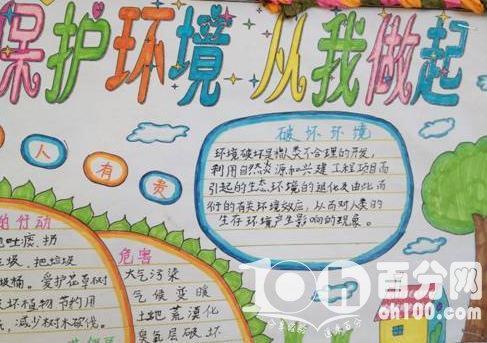 保护环境 从我做起
人有责
破坏环境
环境破坏是指人类不合理的开发,
利用自然资源和兴建工程项目而
引起的生态环境的退化及由此而
衍的有关环境效应,从而对人类的
生存环境产生影响的现象。
的行动
地吐痰,扔
垃圾,把垃圾
圾桶。爱护花草树
坏植物节约用
减少树木砍伐。
危害
大气污染
气候变暖
土地荒漠化
臭氧层破坏
百分网